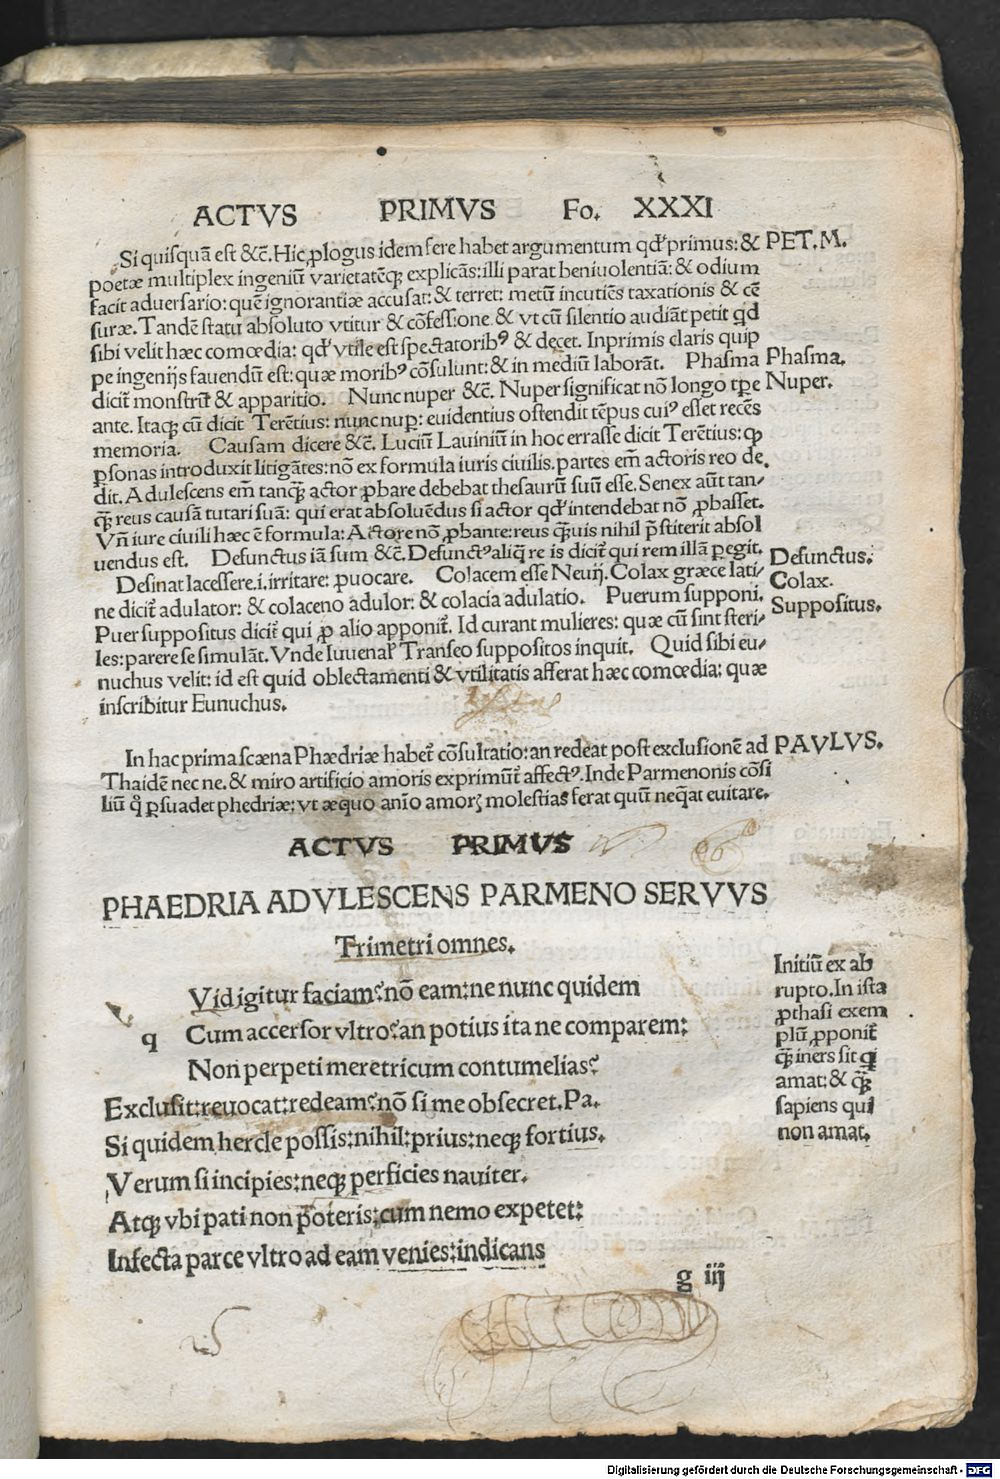 ACTVS PRIMVS Fo. XXXI
Si quisquã est &c̃. Hic ꝓlogus idem fere habet argumentum qđ primus: & PET. M.
poetæ multiplex ingeniũ varietatẽqꝫ explicãs: illi parat beniuolentiã: & odium
facit aduersario: quẽ ignorantiæ accusat: & terret: metũ incutiẽs taxationis & cẽ
suræ. Tandẽ statu absoluto vtitur & cõfessione & vt cũ silentio audiãt petit qd
sibi velit hæc comœdia: qđ vtile est spectatoribꝰ & decet. Inprimis claris quip
pe ingenijs fauendũ est: quæ moribꝰ cõsulunt: & in mediũ laborãt. Phasma Phasma.
dicit̃ monstrũ & apparitio. Nunc nuper &c̃. Nuper significat nõ longo tꝑe Nuper.
ante. Itaqꝫ cũ dicit Terẽtius: nunc nuꝑ: euidentius ostendit tẽpus cuiꝰ esset recẽs
memoria. Causam dicere &c̃. Luciũ Lauiniũ in hoc errasse dicit Terẽtius: qꝫ
ꝑsonas introduxit litigãtes: nõ ex formula iuris ciuilis. partes em̃ actoris reo de
dit. Adulescens em̃ tanqꝫ̃ actor ꝓbare debebat thesaurũ suũ esse. Senex aũt tan-
qꝫ̃ reus causã tutari suã: qui erat absoluẽdus si actor qđ intendebat nõ ꝓbasset.
Vñ iure ciuili hæc ẽ formula: Actore nõ ꝓbante: reus qꝫ̃uis nihil p̃stiterit absol
uendus est. Defunctus iã sum &c̃. Defunctꝰ aliq̃ re is dicit̃ qui rem illã ꝑegit. Defunctus.
Desinat lacessere .i. irritare: ꝓuocare. Colacem esse Neuij. Colax græce lati- Colax.
ne dicit̃ adulator: & colaceno adulor: & colacia adulatio. Puerum supponi. Suppositus.
Puer suppositus dicit̃ qui ꝓ alio apponit̃. Id curant mulieres: quæ cũ sint steri-
les: parere se simulãt. Vnde Iuuenal̃ Transeo suppositos inquit. Quid sibi eu-
nuchus velit: id est quid oblectamenti & vtilitatis afferat hæc comœdia: quæ
inscribitur Eunuchus.
In hac prima scæna Phædriæ habet̃ cõsultatio: an redeat post exclusionẽ ad PAVLVS.
Thaidẽ nec ne. & miro artificio amoris exprimũt̃ affectꝰ. Inde Parmenonis cõsi
liũ q̊ ꝑsuadet phedriæ: vt æquo anio amorꝫ molestias ferat quũ neq̃at euitare.
ACTVS PRIMVS
PHAEDRIA ADVLESCENS PARMENO SERVVS
Trimetri omnes.
q Vid igitur faciam? nõ eam: ne nunc quidem
Cum accersor vltro? an potius ita ne comparem:
Non perpeti meretricum contumelias?
Exclusit: reuocat: redeam? nõ si me obsecret. Pa.
Si quidem hercle possis: nihil: prius: neqꝫ fortius.
Verum si incipies: neqꝫ perficies nauiter.
Atqꝫ vbi pati non poteris: cum nemo expetet:
Infecta parce vltro ad eam venies: indicans
Initiũ ex ab
rupto. In ista
ꝓthasi exem
plũ ꝓponit̃
qꝫ̃ iners sit qi
amat: & qꝫ̃
sapiens qui
non amat.
g iij
Digitalisierung gefördert durch die Deutsche Forschungsgemeinschaft - DFG